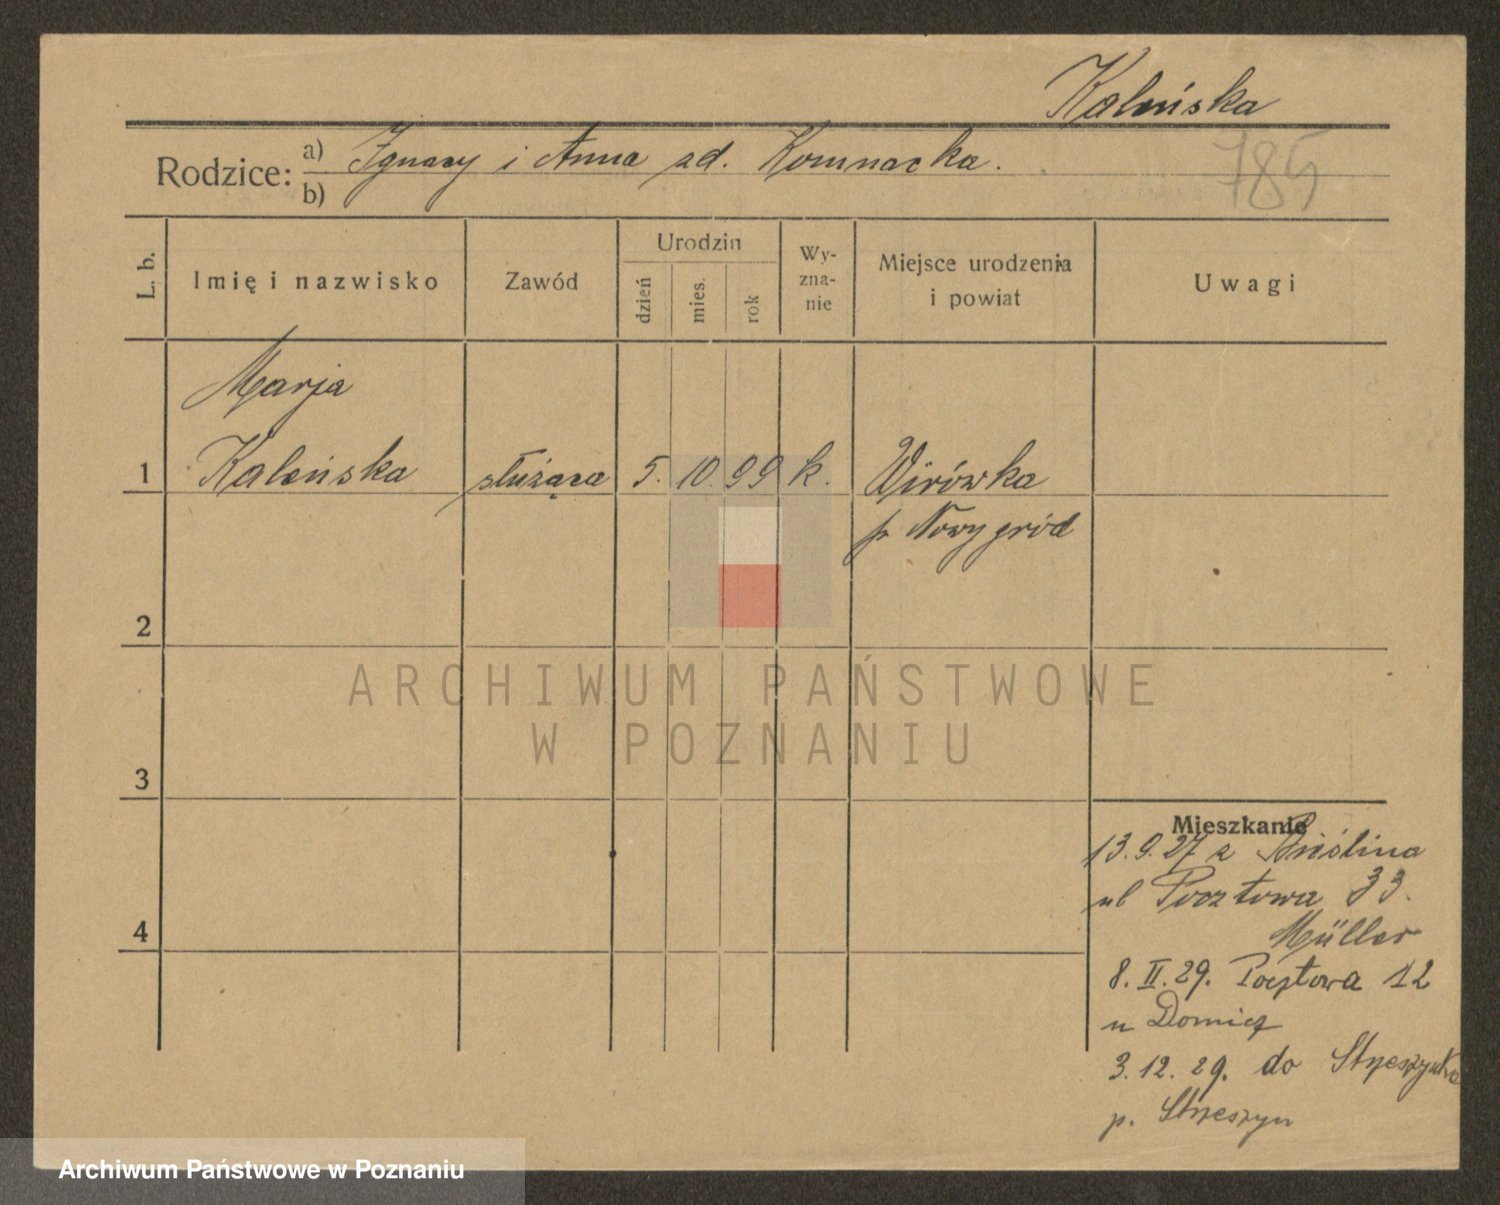 Kaleńska
785
Rodzice: a) Ignacy i Anna zd. Komnacka.
b)
L. b.
Imię i nazwisko
Zawód
Urodzin
dzień
mies.
rok
Wy-
zna-
nie
Miejsce urodzenia
i powiat
Uwagi
Marja
1 Kaleńska służąca 5. 10. 99 k. Wirówka
p Nowygród
2
ARCHIWUM PAŃSTWOWE
W POZNANIU
3
Mieszkanie
13.9.27 z
ul Pocztowa 33.
Müller
4
8. II. 29. Pocztowa 12
u
3. 12. 29. do Strzeszynka
p. Strzeszyn
Archiwum Państwowe w Poznaniu